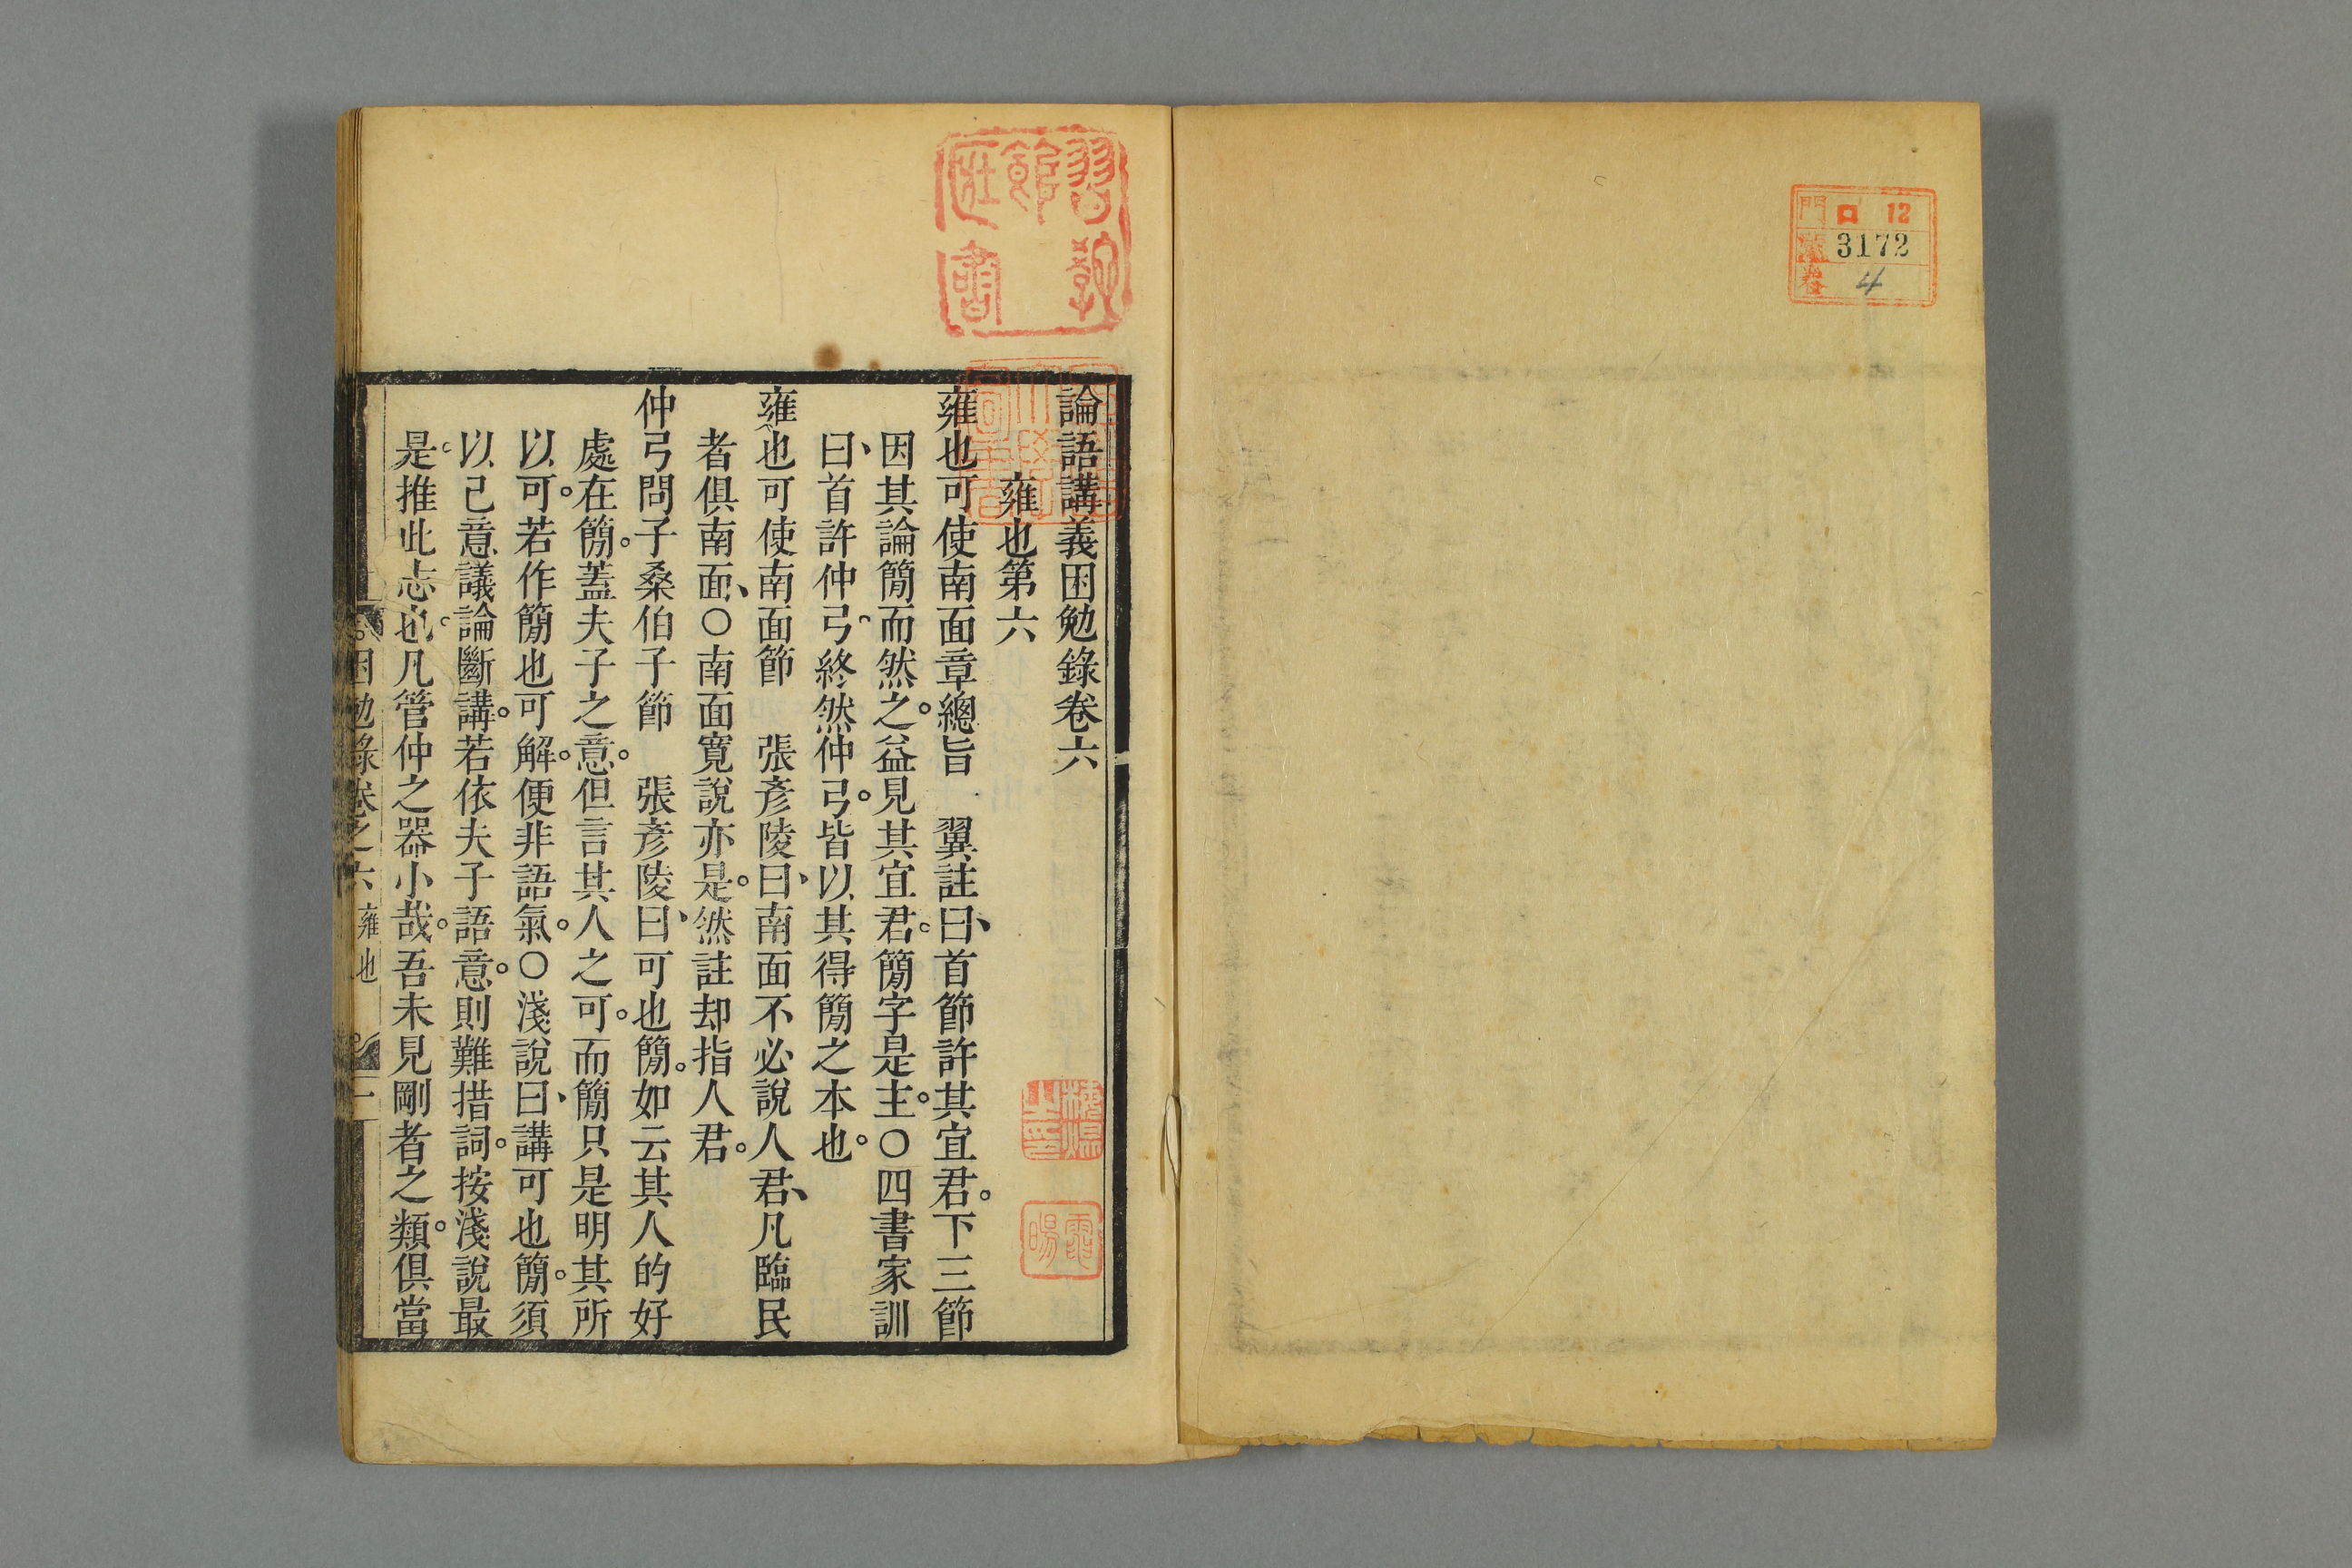 門 ロ 12
號 3172
卷 4
論語講義困勉錄卷六
雍也第六
雍也可使南面章總旨 翼註曰、首節許其宜君。下三節
因其論簡而然之。益見其宜君。簡字是主。○四書家訓
曰、首許仲弓。終然仲弓。皆以其得簡之本也。
雍也可使南面節 張彥陵曰、南面不必說人君、凡臨民
者俱南面、○南面寬說亦是。然註却指人君。
仲弓問子桑伯子節 張彥陵曰、可也簡。如云其人的好
處在簡。蓋夫子之意。但言其人之可。而簡只是明其所
以可。若作簡也可解。便非語氣。○淺說曰、講可也簡。須
以己意議論斷講。若依夫子語意。則難措詞。按淺說最
是。推此志也。凡管仲之器小哉。吾未見剛者之類。俱當
困勉錄卷之六 雍也 一